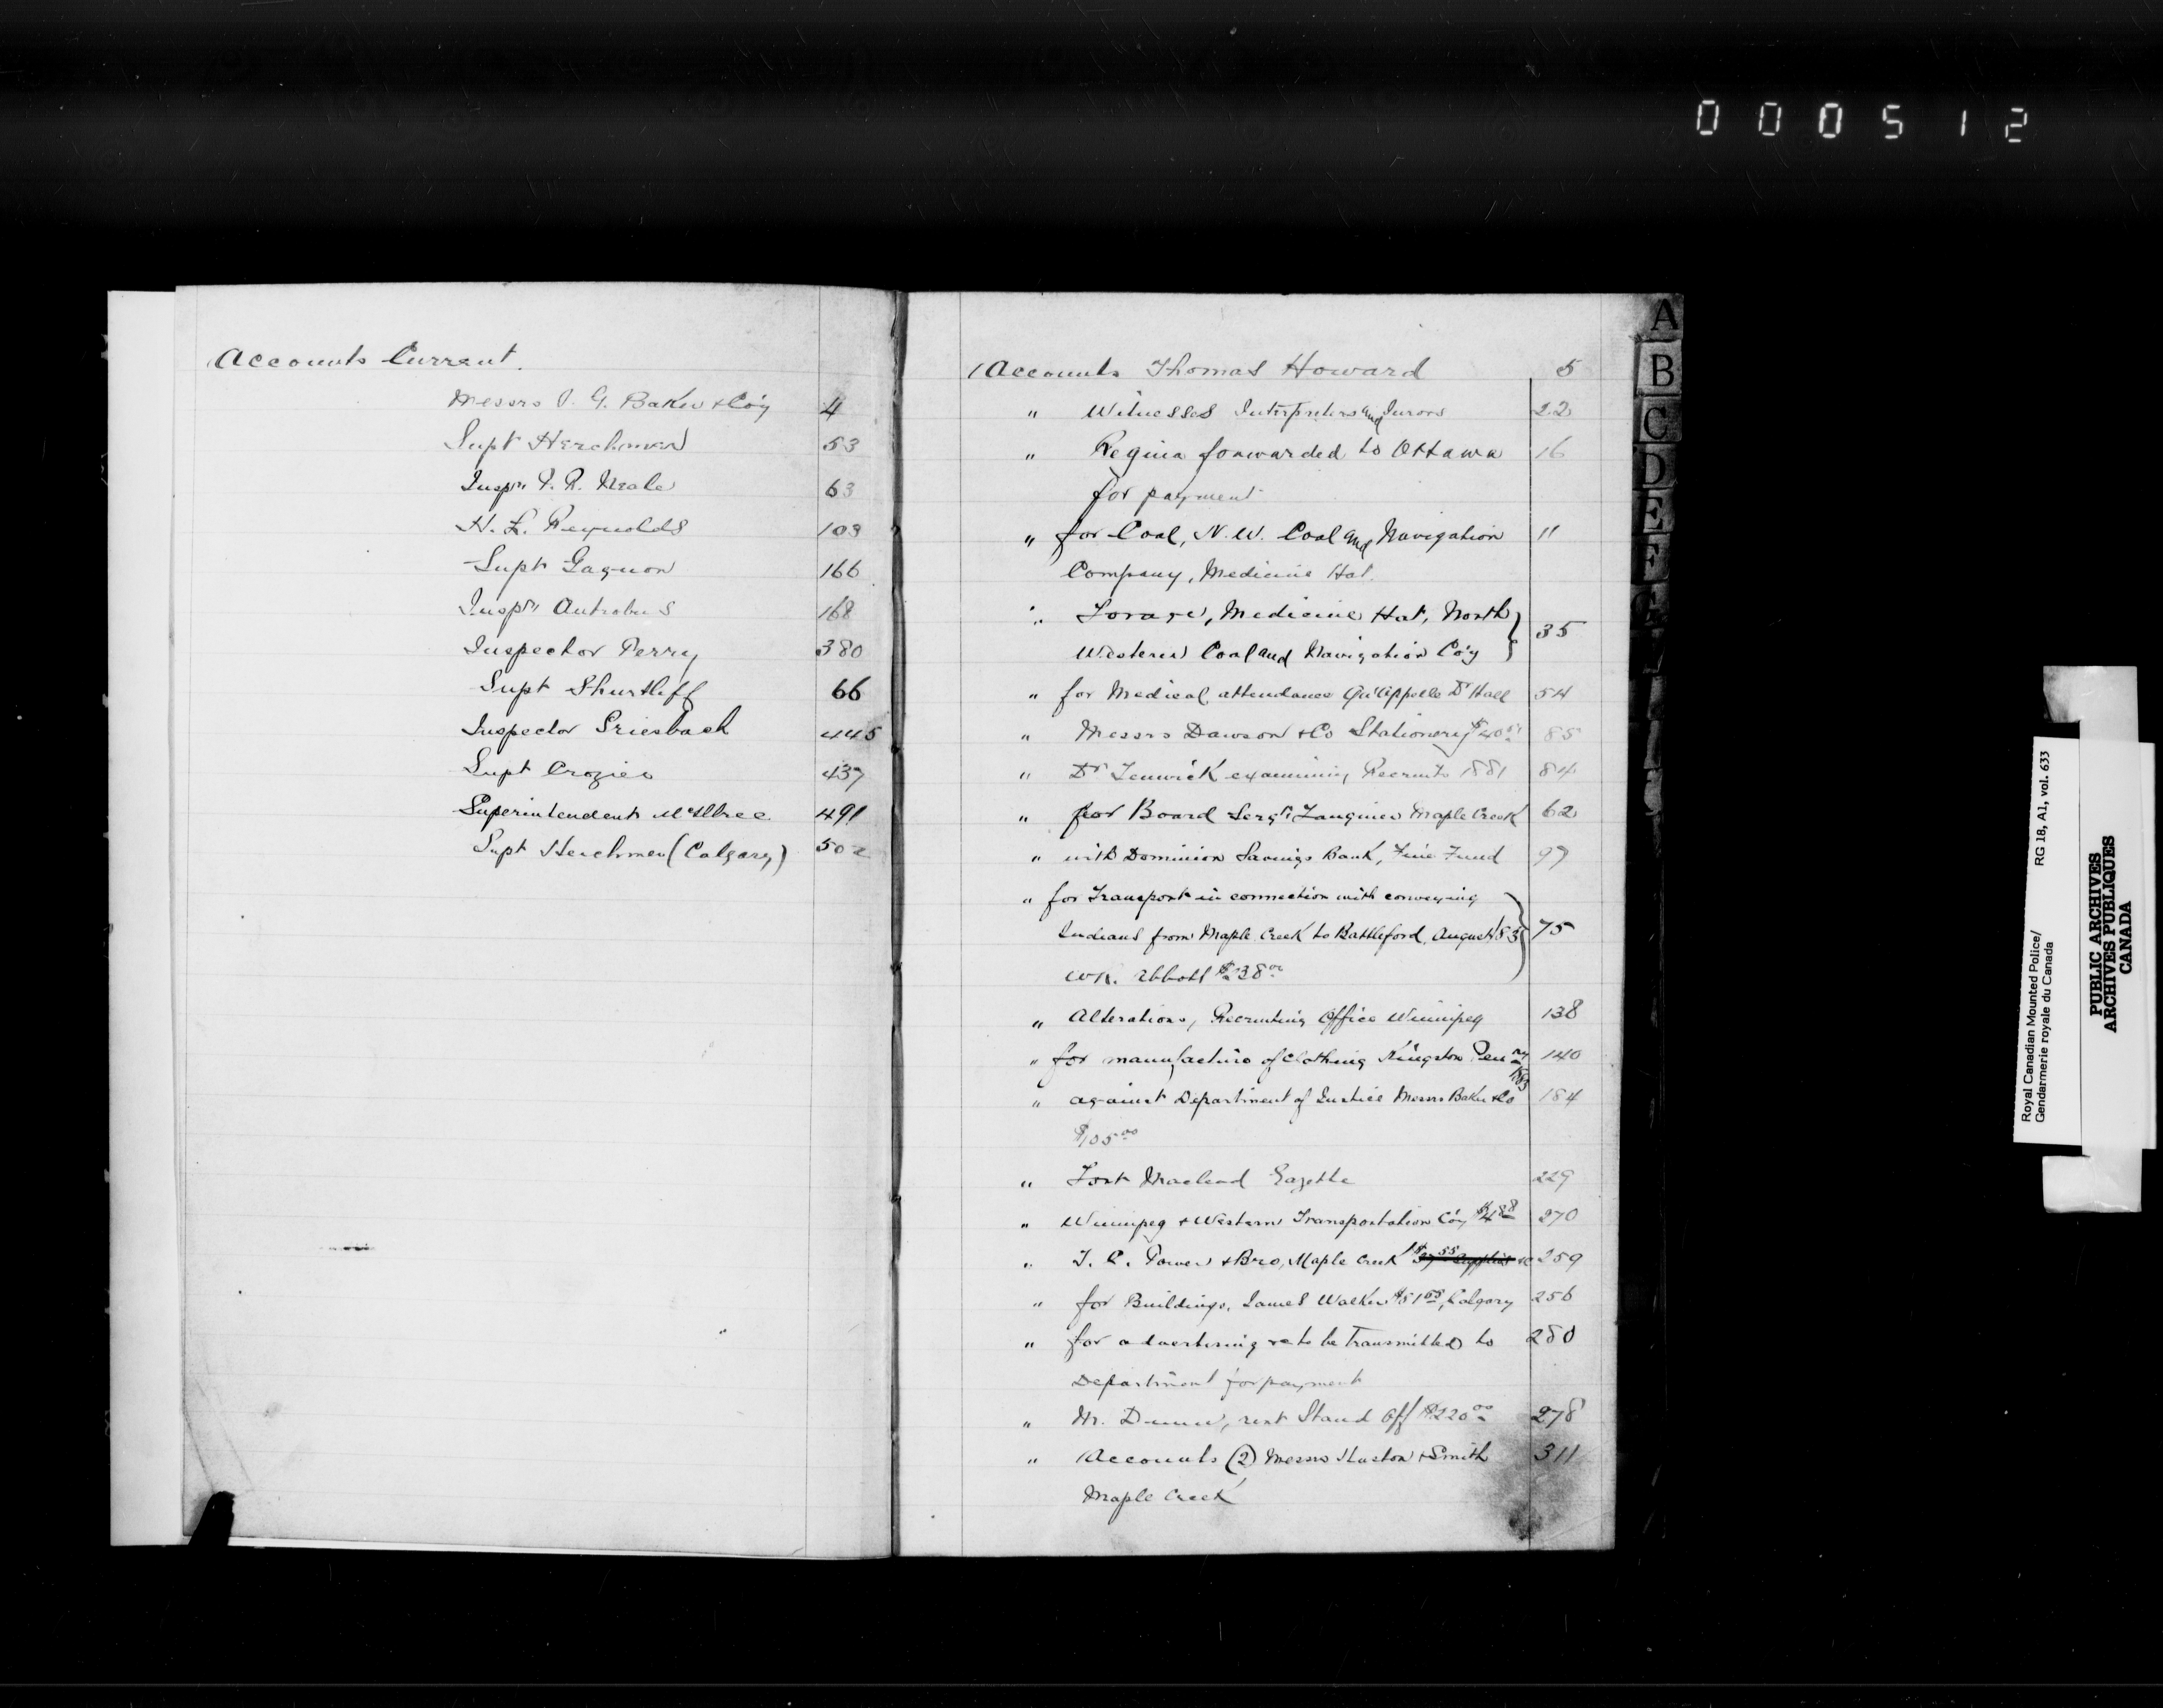 000512
Accounts Current.
Messrs I. G. Baker & Co'y 4
Supt Herchmer 53
Inspr P. R. Neale 63
H. L. Reynolds 103
Supt Gagnon 166
Inspr Antrobus 168
Inspector Perry 380
Supt Shurtliff 66
Inspector Griesbach 445
Supt Crozier 437
Superintendent McIllree 491
Supt Herchmer (Calgary) 502
Accounts Thomas Howard 5
" Witnesses Interpreters and Jurors 22
" Regina forwarded to Ottawa 16
for payment
" for Coal, N. W. Coal and Navigation 11
Company, Medicine Hat.
" Forage, Medicine Hat, North
Western Coal and Navigation Co'y } 35
" for Medical attendance Qu'Appelle Dr Hall 54
" Messrs Dawson & Co Stationery $40 85
" Dr Fenwick examining Recruits 1881 84
" for Board Sergt Langines Maple Creek 62
" with Dominion Savings Bank, Fine Fund 97
" for Transport in connection with conveying
Indians from Maple Creek to Battleford, August '83 } 75
Wm. Abbott $238 00
" Alterations, Recruiting Office Winnipeg 138
" for manufacture of Clothing Kingston Peny 1883 140
" against Department of Justice Messrs Baker & Co 184
$105 00
" Fort Macleod Gazette 229
" Winnipeg & Western Transportation Co'y $4 88 270
" T. C. Power & Bro, Maple Creek $37 55 Supplies &c 259
" for Buildings, James Walker $51 68, Calgary 256
" for advertising re to be Transmitted to 280
Department for payment
" Mr. Dunne, rent Stand Off $220 00 278
" Accounts (2) Messrs Huston & Smith 311
Maple Creek
A
B
C
D
E
F
G
Royal Canadian Mounted Police/ RG 18, A1, vol. 633
Gendarmerie royale du Canada
PUBLIC ARCHIVES
ARCHIVES PUBLIQUES
CANADA